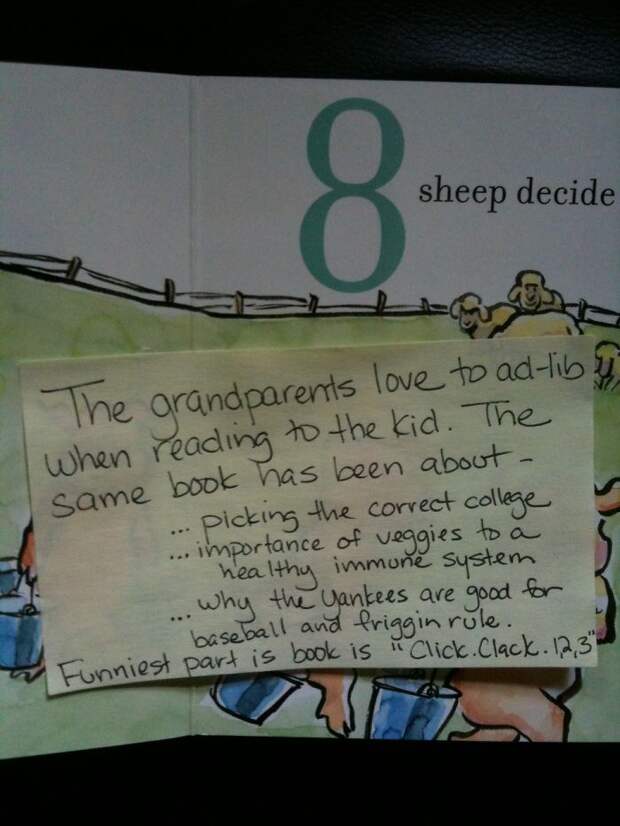 8 sheep decide
The grandparents love to ad-lib
when reading to the kid. The
same book has been about -
... picking the correct college
... importance of veggies to a
healthy immune system
... why the Yankees are good for
baseball and friggin rule.
Funniest part is book is "Click.Clack.12,3"